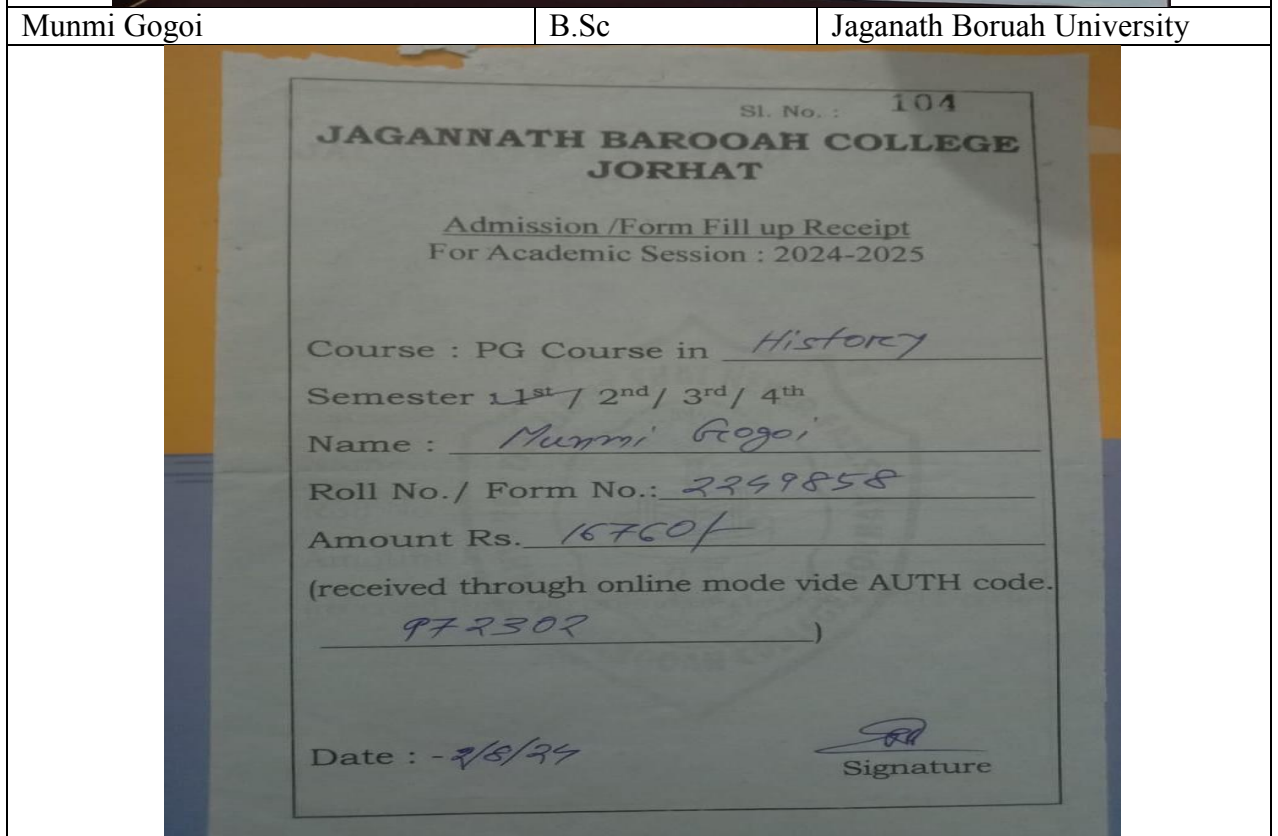 Munmi Gogoi B.Sc Jaganath Boruah University
Sl. No. : 104
JAGANNATH BAROOAH COLLEGE
JORHAT
Admission /Form Fill up Receipt
For Academic Session : 2024-2025
Course : PG Course in History
Semester : 1st / 2nd / 3rd / 4th
Name : Munmi Gogoi
Roll No./ Form No.: 2249858
Amount Rs. 16760/-
(received through online mode vide AUTH code.
972302 )
Date : - 2/8/24
Signature